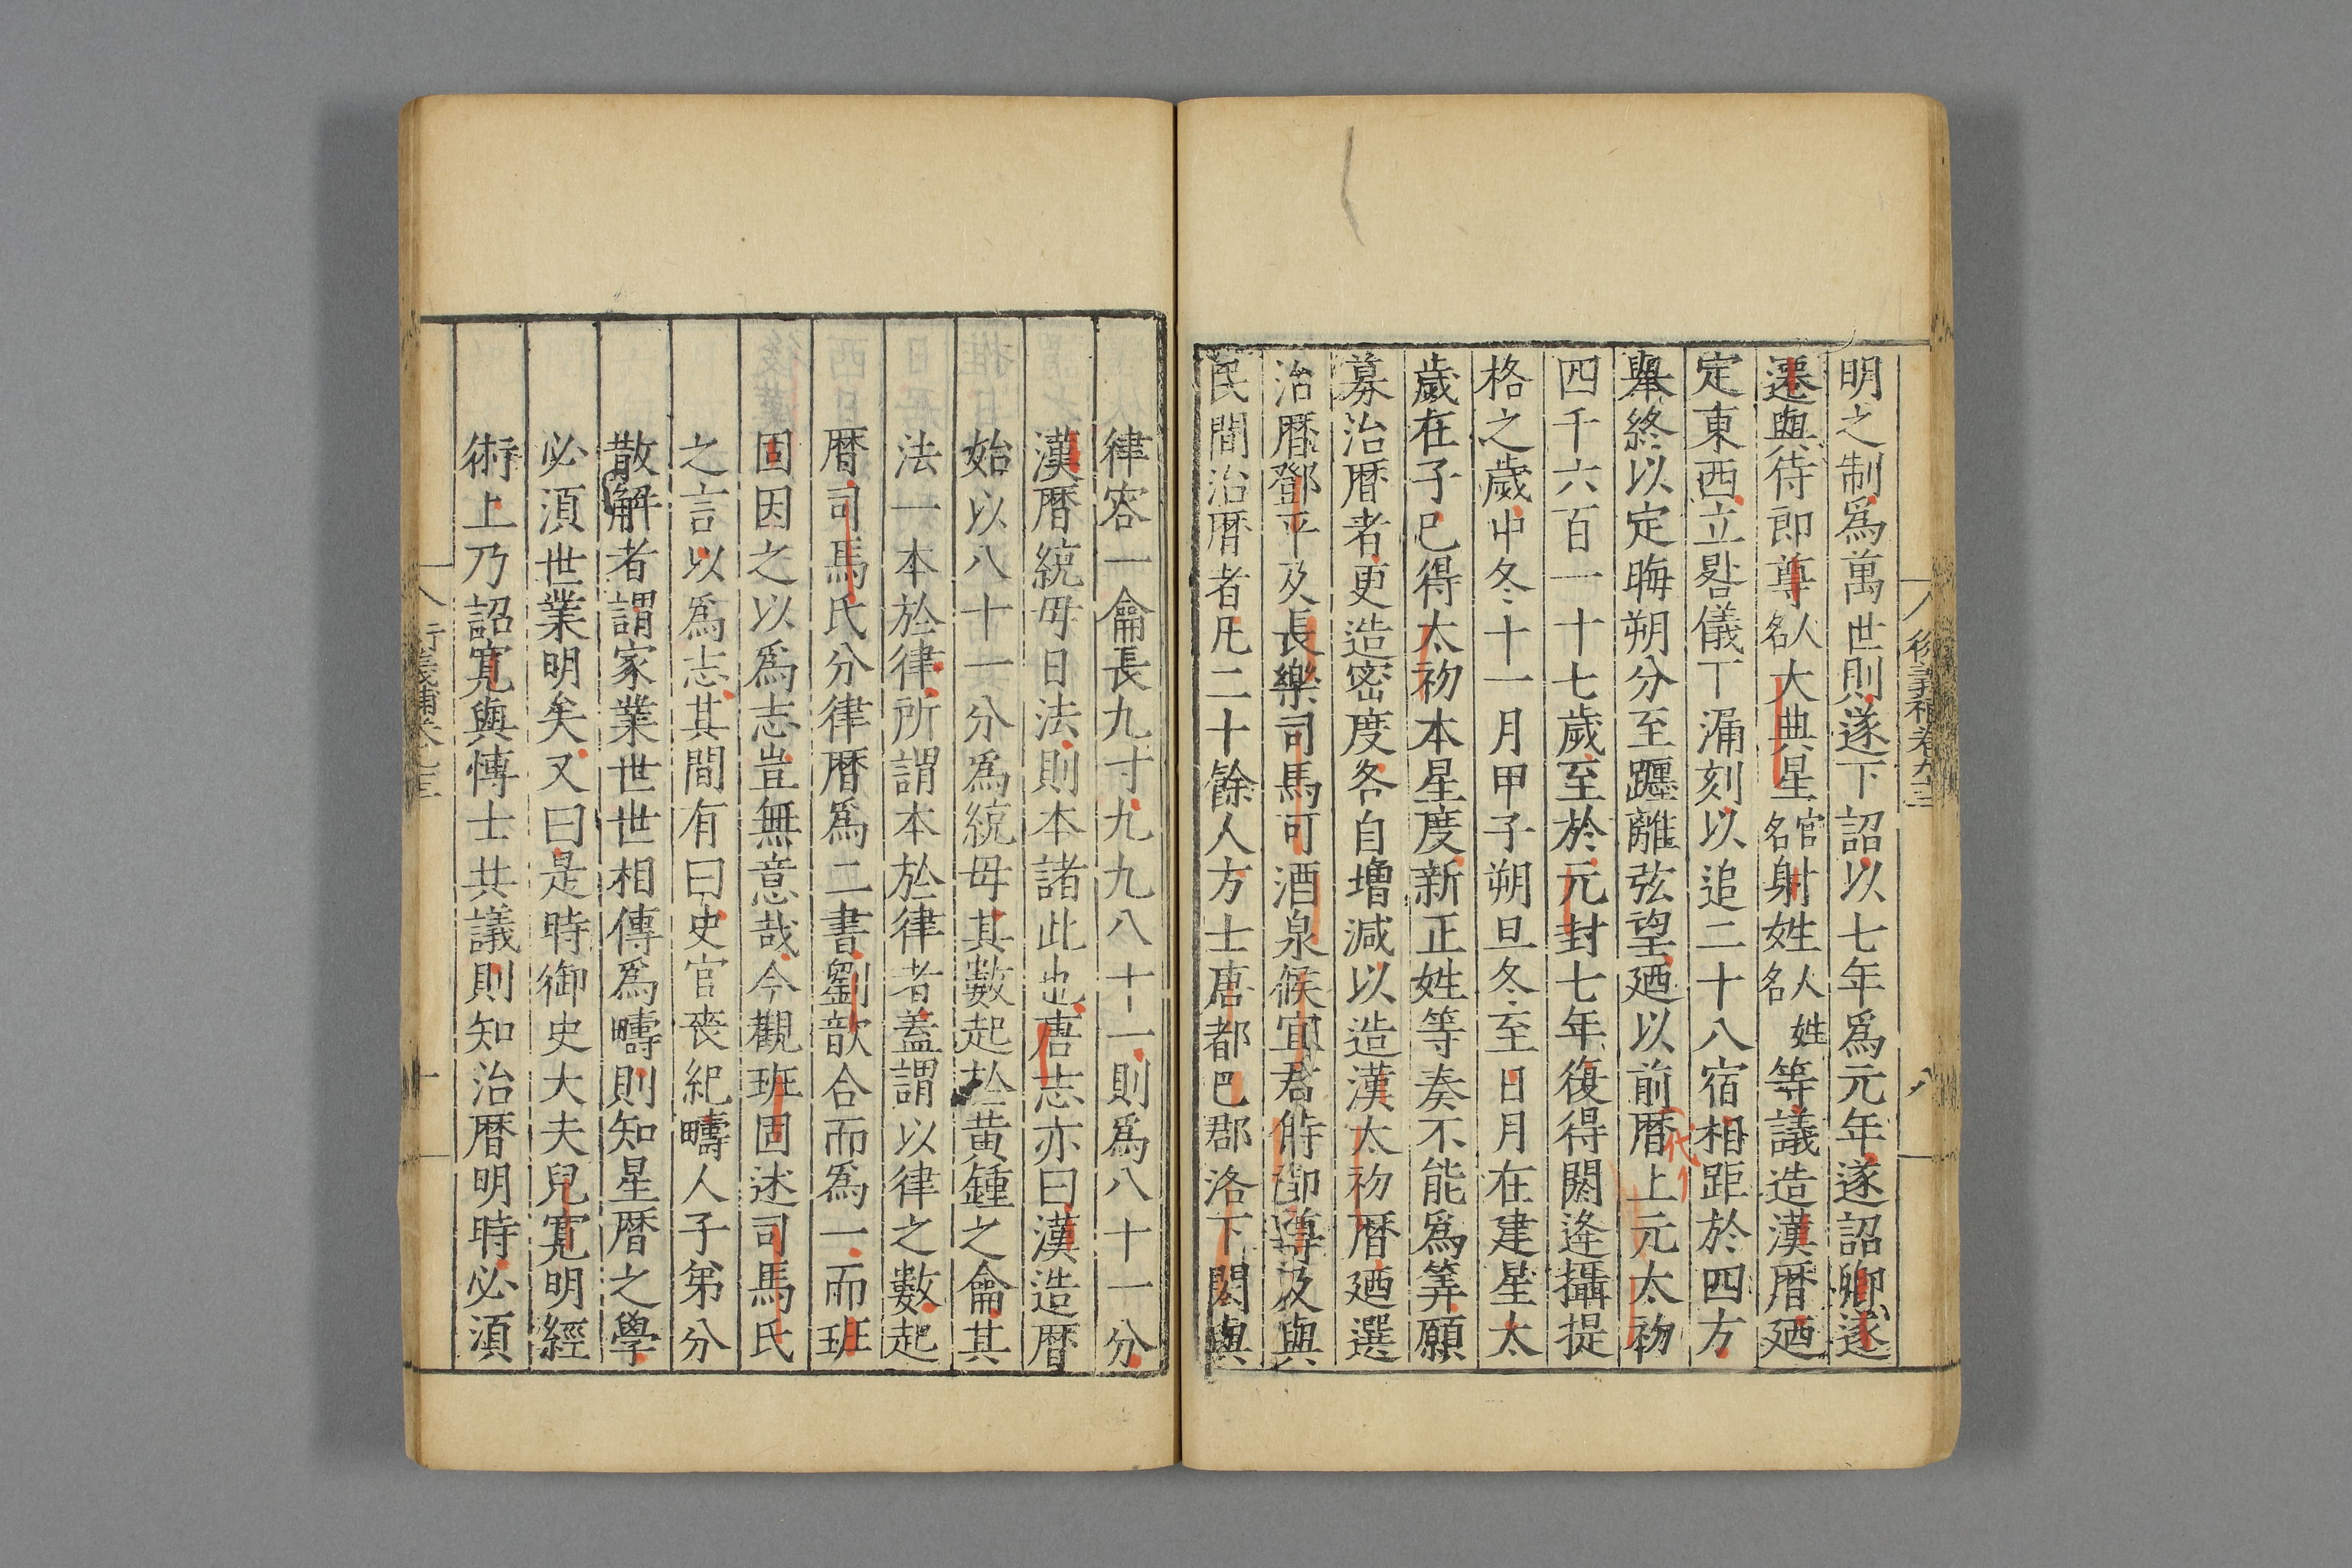 明之制爲萬世則遂下詔以七年爲元年遂詔卿遂
遷與侍郎尊人名大典星官名射姓人姓名等議造漢曆廼
定東西立晷儀下漏刻以追二十八宿相距於四方
舉終以定晦朔分至躔離弦望廼以前曆上元太初
代
四千六百一十七歲至於元封七年復得閼逢攝提
格之歲中冬十一月甲子朔旦冬至日月在建星太
歲在子已得太初本星度新正姓等奏不能爲筭願
募治曆者更造密度各自增減以造漢太初曆廼選
治曆鄧平及長樂司馬可酒泉候宜君侍郎尊及與
民間治曆者凡二十餘人方士唐都巴郡洛下閎與
律容一龠長九寸九九八十一則爲八十一分
漢曆統毋日法則本諸此也唐志亦曰漢造曆
始以八十一分爲統毋其數起於黃鍾之龠其
法一本於律所謂本於律者蓋謂以律之數起
曆司馬氏分律曆爲二書劉歆合而爲一而班
固因之以爲志豈無意哉今觀班固述司馬氏
之言以爲志其間有曰史官喪紀疇人子弟分
散解者謂家業世世相傳爲疇則知星曆之學
必須世業明矣又曰是時御史大夫兒寬明經
術上乃詔寬與博士共議則知治曆明時必須